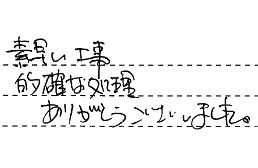 素早い工事
的確な処理
ありがとうございました。